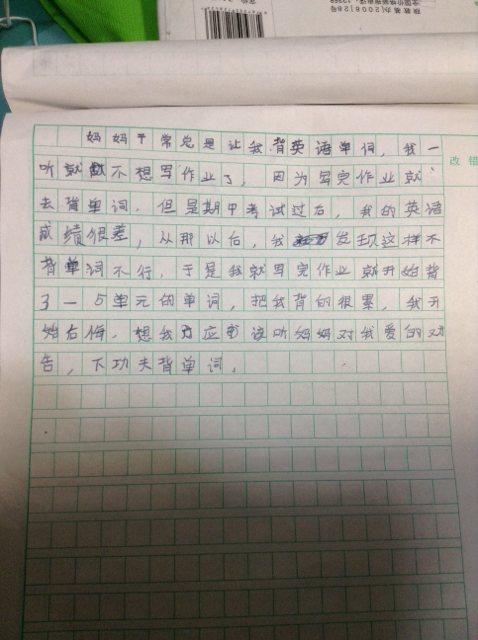 妈妈平常总是让我背英语单词，我一
听就不想写作业了，因为写完作业就
去背单词。但是期中考试过后，我的英语
成绩很差，从那以后，我发现这样不
背单词不行，于是我就写完作业就开始背
了一5单元的单词，把我背的很累，我开
始后悔，想我应该听妈妈对我爱的劝
告，下功夫背单词。
改错